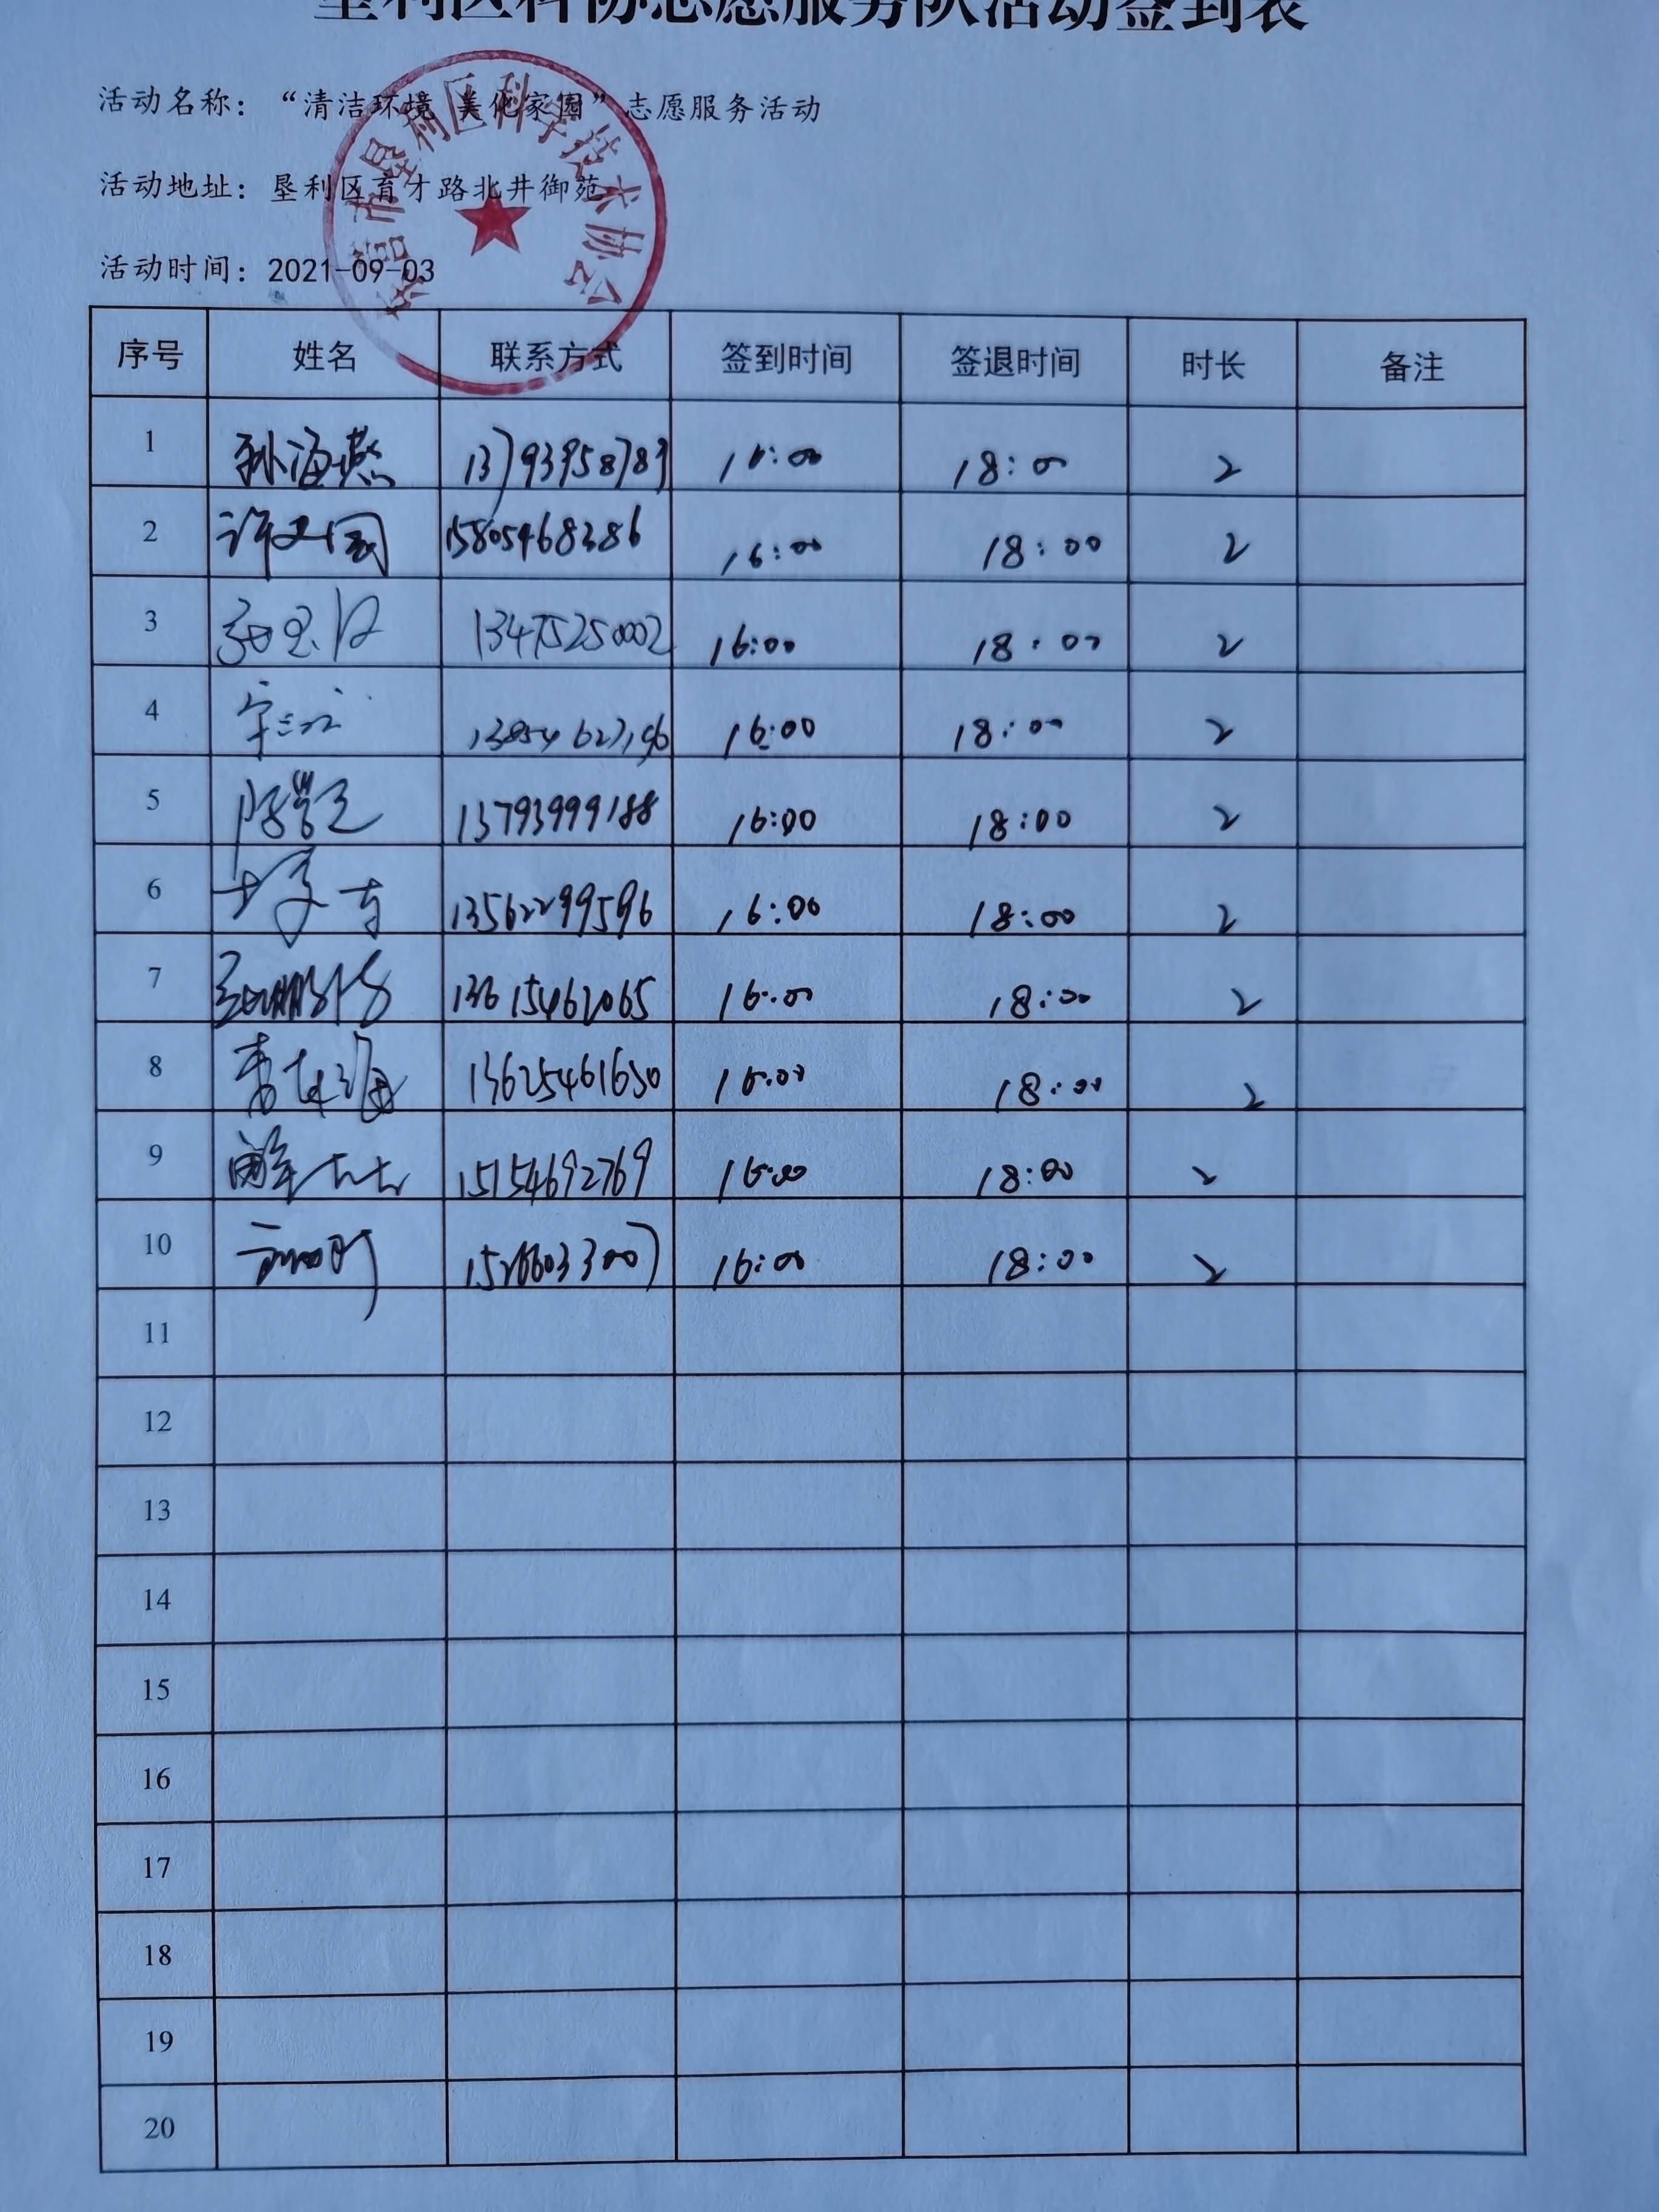 垦利区科协志愿服务队活动签到表
活动名称：“清洁环境 美化家园”志愿服务活动
活动地址：垦利区育才路北井御苑
活动时间：2021-09-03
东营市垦利区科学技术协会
序号 姓名 联系方式 签到时间 签退时间 时长 备注
1 孙海燕 13793958789 16:00 18:00 2
2 许文国 15805468386 16:00 18:00 2
3 13475250002 16:00 18:00 2
4 16:00 18:00 2
5 13793999188 16:00 18:00 2
6 13562299596 16:00 18:00 2
7 13615462065 16:00 18:00 2
8 13625461650 16:00 18:00 2
9 15154692769 16:00 18:00 2
10 16:00 18:00 2
11
12
13
14
15
16
17
18
19
20